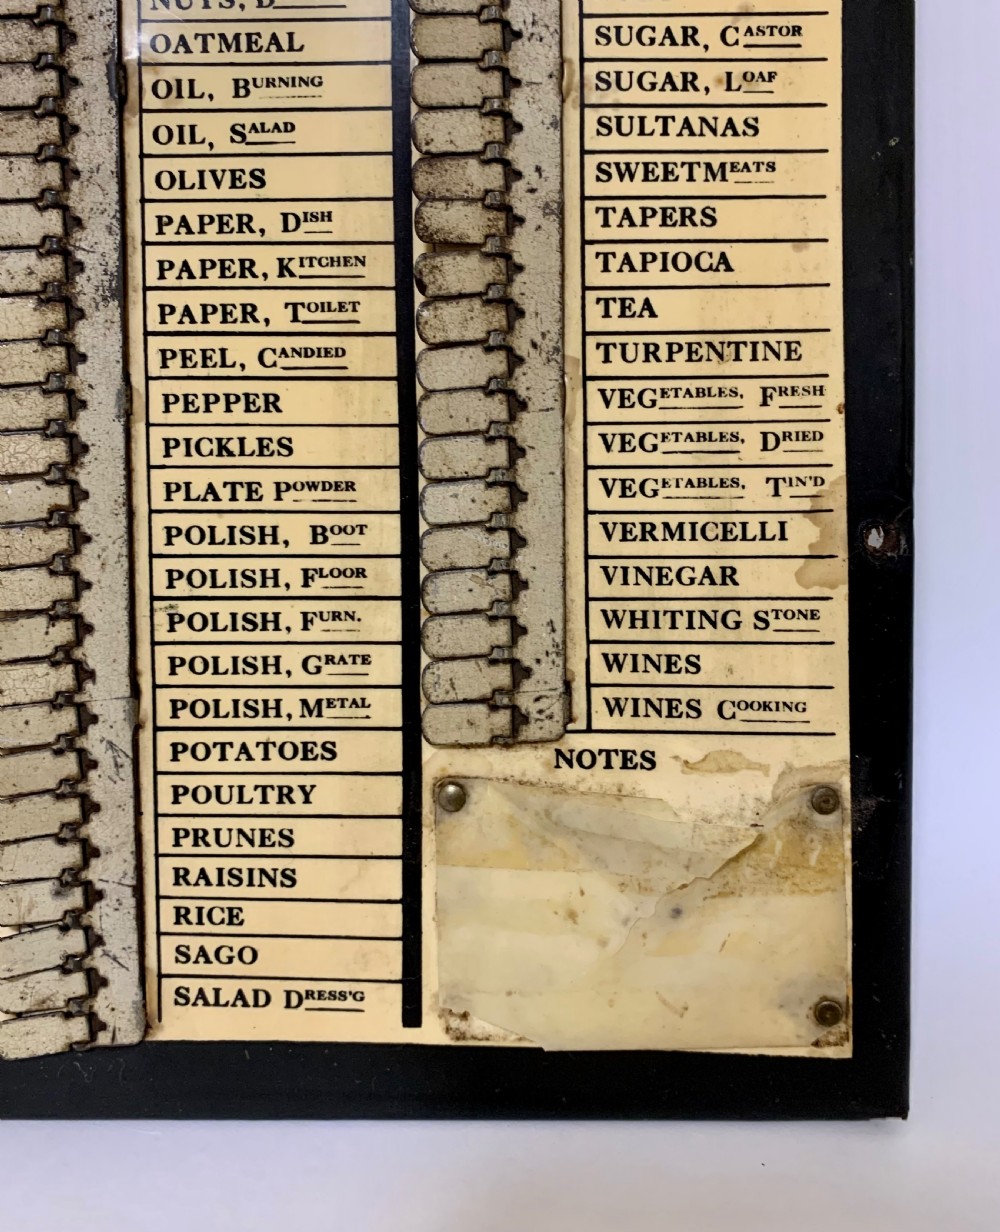 NUTS, D
OATMEAL
OIL, BURNING
OIL, SALAD
OLIVES
PAPER, DISH
PAPER, KITCHEN
PAPER, TOILET
PEEL, CANDIED
PEPPER
PICKLES
PLATE POWDER
POLISH, BOOT
POLISH, FLOOR
POLISH, FURN.
POLISH, GRATE
POLISH, METAL
POTATOES
POULTRY
PRUNES
RAISINS
RICE
SAGO
SALAD DRESS'G
SUGAR, CASTOR
SUGAR, LOAF
SULTANAS
SWEETMEATS
TAPERS
TAPIOCA
TEA
TURPENTINE
VEGETABLES, FRESH
VEGETABLES, DRIED
VEGETABLES, TIN'D
VERMICELLI
VINEGAR
WHITING STONE
WINES
WINES COOKING
NOTES